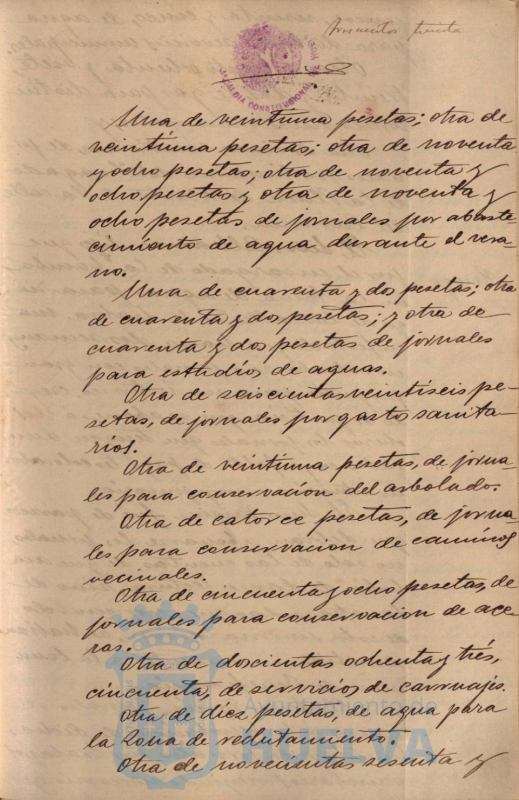 trescientos treinta
ALCALDIA CONSTITUCIONAL DE
Una de veintiuna pesetas; otra de
veintiuna pesetas; otra de noventa
y ocho pesetas; otra de noventa y
ocho pesetas y otra de noventa y
ocho pesetas de jornales por abaste-
cimiento de agua durante el vera-
no.
Una de cuarenta y dos pesetas; otra
de cuarenta y dos pesetas; y otra de
cuarenta y dos pesetas de jornales
para estudios de aguas.
Otra de seiscientas veintiseis pe-
setas, de jornales por gastos sanita-
rios.
Otra de veintiuna pesetas, de jorna-
les para conservación del arbolado.
Otra de catorce pesetas, de jorna-
les para conservacion de caminos
vecinales.
Otra de cincuenta y ocho pesetas, de
jornales para conservacion de ace-
ras.
Otra de doscientas ochenta y trés,
cincuenta, de servicios de carruajes.
Otra de diez pesetas, de agua para
la Zona de reclutamiento.
Otra de novecientas sesenta y
Ayuntamiento de
HUELVA